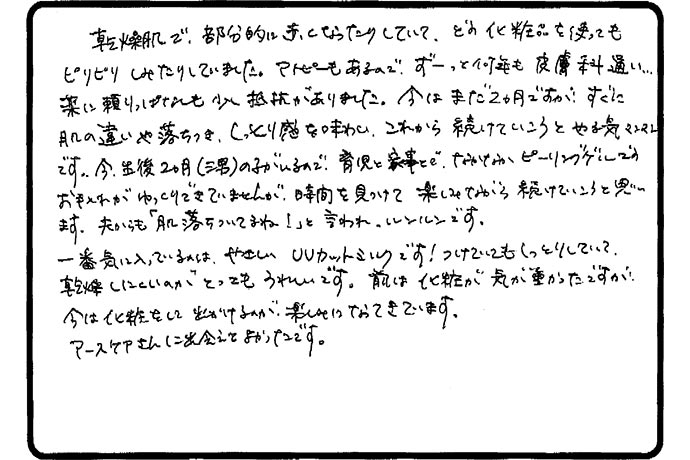 乾燥肌で、部分的に赤くなったりしていて、どの化粧品を使っても
ピリピリしみたりしていました。アトピーもあるので、ずーっと何年も皮膚科通い…
薬に頼りっぱなしも少し抵抗がありました。今はまだ2ヵ月ですが、すぐに
肌の違いや落ちつき、しっとり感を味わい、これから続けていこうとやる気マンマン
です。今、生後2ヵ月(三男)の子がいるので、育児と家事とで、なかなかピーリングゲルでの
お手入れがゆっくりできていませんが、時間を見つけて楽しみながら続けていこうと思い
ます。夫からも「肌落ちついてるね!」と言われ、ルンルンです。
一番気に入っているのは、やさしいUVカットミルクです!つけていてもしっとりしていて、
乾燥しにくいのがとってもうれしいです。前は化粧が気が重かったですが、
今は化粧をして出かけるのが、楽しみになってきています。
アースケアさんに出会えてよかったです。